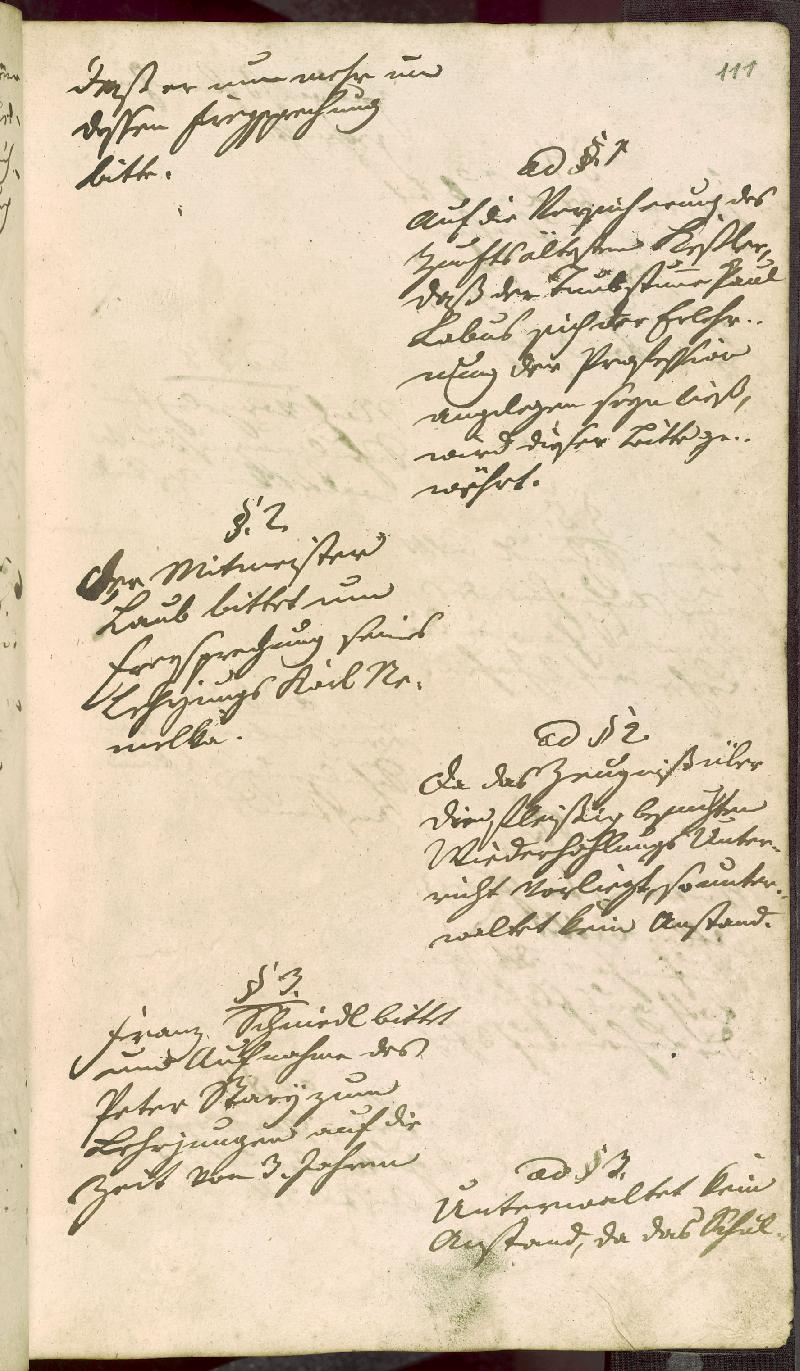 111
daß er nun mehr um
dessen Freysprechung
bitte.
ad §. 1
Auf die Versicherung des
Zunftsältesten Keßler,
daß der Taubstume Paul
Labus sich der Erlehr..
nung der Profession
angelegen seyn ließ,
wird dieser Bitte ge..
währt.
§. 2
Der Mitmeister
Laub bittet um
Freysprechung seines
Lehrjungs Karl Ne.
melka.
ad § 2
Da das Zeugniß über
den fleißig besuchten
Wiederhohlungs Unter-
richt vorliegt, so unter-
waltet kein Anstand.
§ 3.
Franz Schmiedl bittet
um Aufnahme des
Peter Stary zum
Lehrjungen auf die
Zeit von 3. Jahren
ad § 3.
Unterwaltet kein
Anstand, da das Schul-